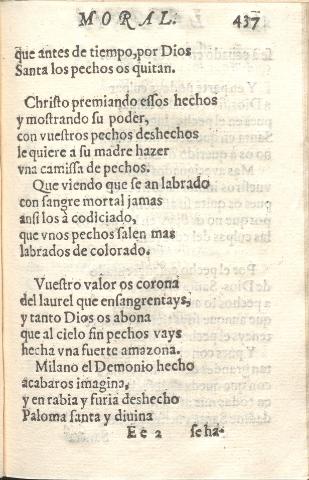 MORAL. 437
que antes de tiempo, por Dios
Santa los pechos os quitan.
Christo premiando essos hechos
y mostrando su poder,
con vuestros pechos deshechos
le quiere a su madre hazer
vna camissa de pechos.
Que viendo que se an labrado
con sangre mortal jamas
ansi los à codiciado,
que vnos pechos salen mas
labrados de colorado.
Vuestro valor os corona
del laurel que ensangrentays,
y tanto Dios os abona
que al cielo sin pechos vays
hecha vna fuerte amazona.
Milano el Demonio hecho
acabaros imagina,
y en rabia y furia deshecho
Paloma santa y diuina
Eee 2 se ha-